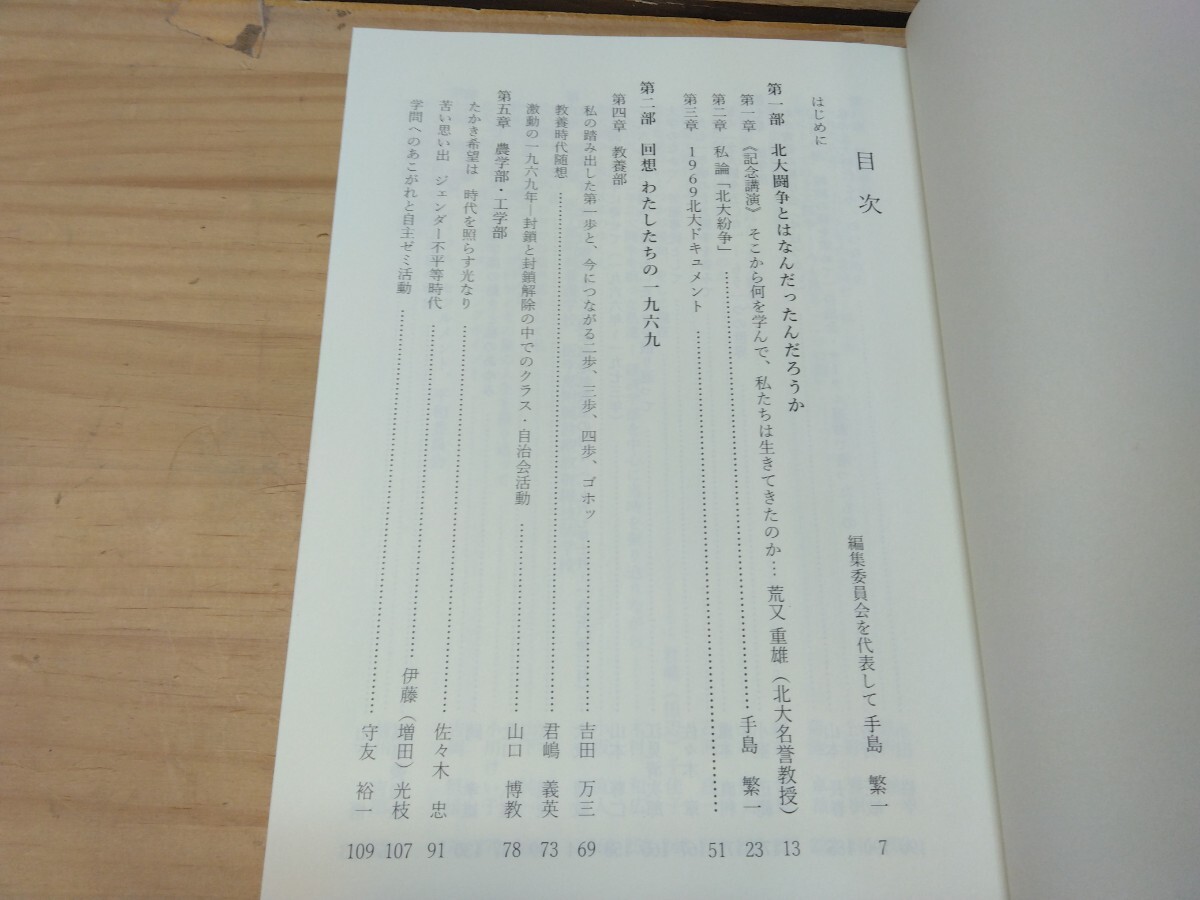 目次
はじめに 編集委員会を代表して 手島 繁一 7
第一部 北大闘争とはなんだったんだろうか
第一章 《記念講演》 そこから何を学んで、私たちは生きてきたのか… 荒又 重雄（北大名誉教授） 13
第二章 私論「北大紛争」 手島 繁一 23
第三章 1969北大ドキュメント 51
第二部 回想 わたしたちの一九六九
第四章 教養部
私の踏み出した第一歩と、今につながる二歩、三歩、四歩、ゴホッ 吉田 万三 69
教養時代随想 君嶋 義英 73
激動の一九六九年―封鎖と封鎖解除の中でのクラス・自治会活動 山口 博教 78
第五章 農学部・工学部
たかき希望は 時代を照らす光なり 佐々木 忠 91
苦い思い出 ジェンダー不平等時代 伊藤（増田）光枝 107
学問へのあこがれと自主ゼミ活動 守友 裕一 109